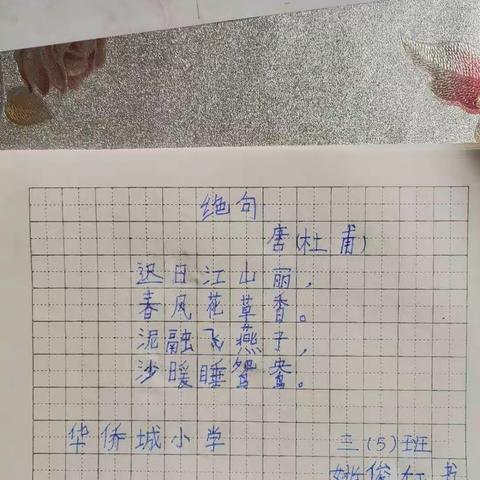 绝句
唐(杜甫)
迟日江山丽，
春风花草香。
泥融飞燕子，
沙暖睡鸳鸯。
华侨城小学 三(5)班
姚俊 书